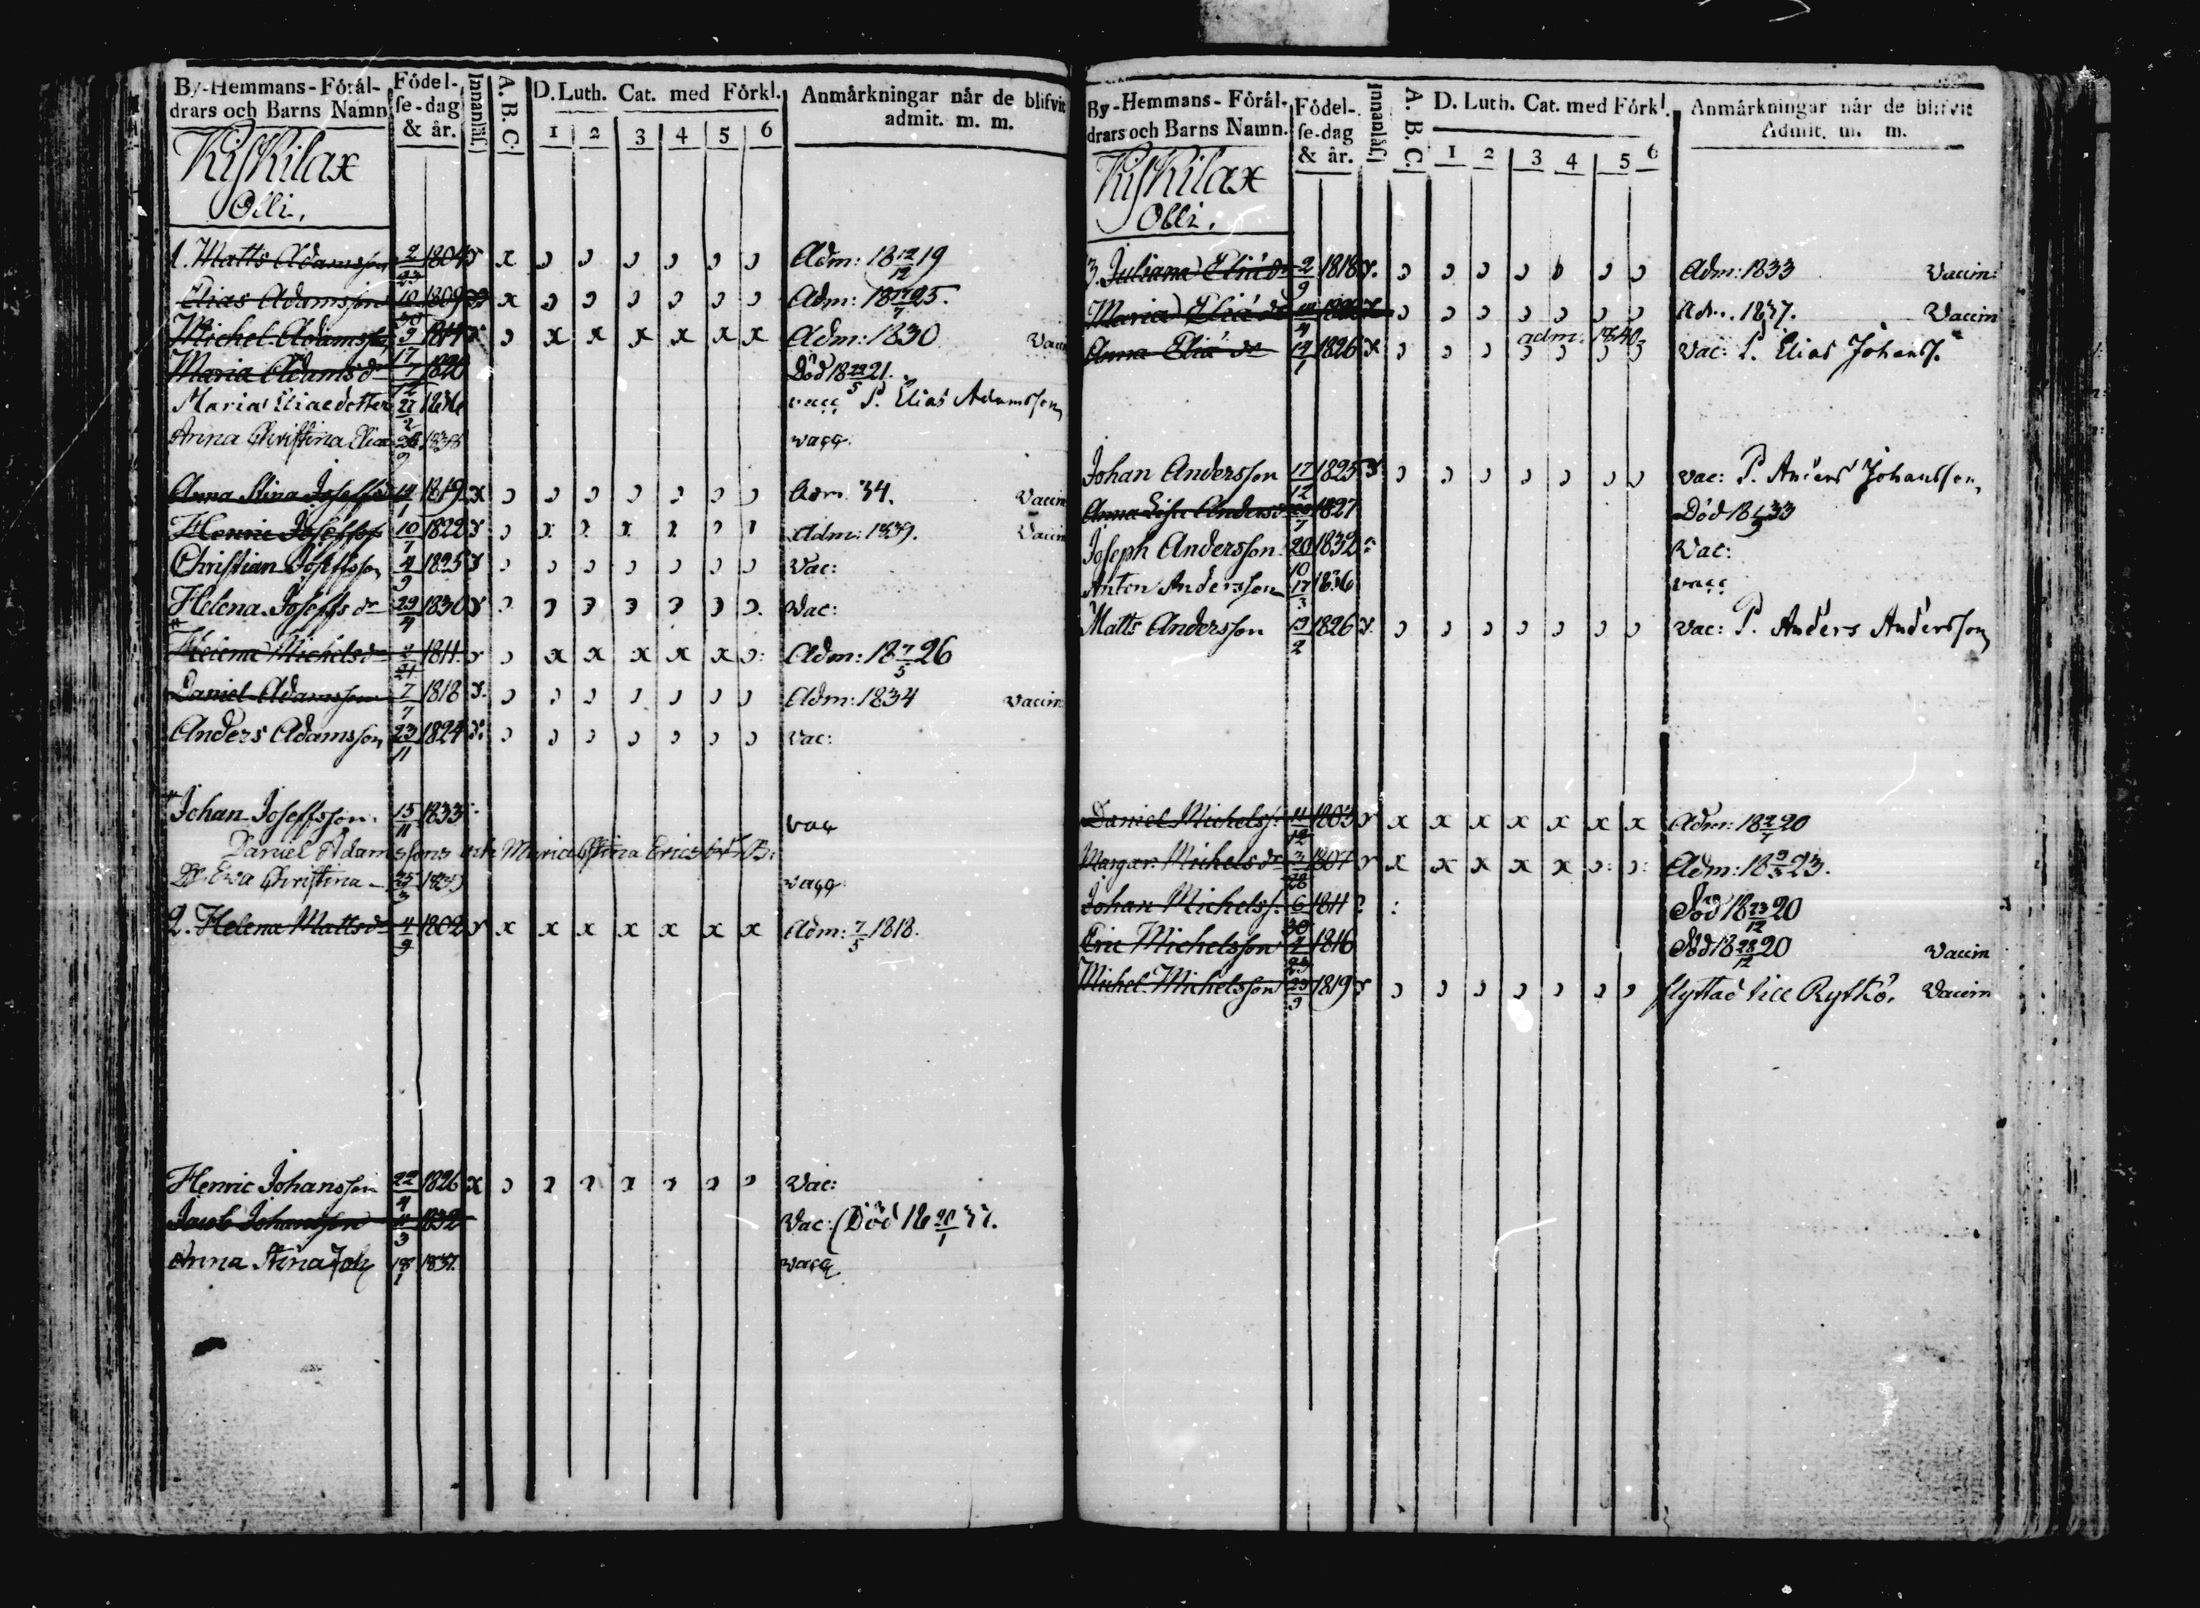 By-Hemmans-Fórál-
drars och Barns Namn
Fódel-
se-dag
& år.
Innanläs.
A. B. C.
D. Luth. Cat. med Fórkl.
1 2 3 4 5 6
Anmårkningar når de blifvit
admit. m. m.
Kiskilax
Olli.
1. Matts Adamsson 2/23 1804 x x Adm: 18 12/12 19
Elias Adamsson 10/30 1809 x Adm: 18 17/7 25.
Michel Adamsson 9/17 1814 x x x x x x Adm: 1830
Maria Adamsdr 1820 Död 18 22/5 21.
Maria Eliaedotter 27/2 1836 vacc P. Elias Adamsson
Anna Christina Eliae 26/9 1838 vacc.
Anna Stina Josephsdr 14/1 1819 x Adm. 34. Vaccin
Henric Josefsson 10/7 1822 Adm: 1839. Vaccin
Christian Josefsson 4/9 1825 Vac:
Helena Josefsdr 29/4 1830 Vac:
Helena Michelsdr 2/21 1811 x x x x x Adm: 18 7/5 26
Daniel Adamsson 7/7 1818 Adm: 1834 Vaccin
Anders Adamsson 23/11 1824 vac:
Johan Josefsson. 15/11 1833 vac
Daniel Adamssons och Maria Stina Ericsdrs B:
Dr Eva Christina 25/3 1839 vacc
2. Helena Mattsdr 4/9 1802 x x x x x x x Adm: 7/5 1818.
Henric Johansson 22/4 1826 x Vac:
Jacob Johansson 11/3 1832 Vac: (Död 18 20/1 33.
Anna Stina Joh 18/1 1837. vacc
By-Hemmans-Fórál-
drars och Barns Namn.
Fódel-
se-dag
& år.
Innanläs.
A. B. C.
D. Luth. Cat. med Fórkl.
1 2 3 4 5 6
Anmårkningar når de blifvit
Admit. m. m.
Kiskilax
Olli.
3. Juliana Eliædr 2/9 1818 Adm: 1833 Vaccin:
Maria Eliædr Adm. 1837. Vaccin
adm: 1840.
Anna Eliædr 14/1 1826 x vac: P. Elias Johanss.
Johan Andersson 17/12 1825 vac: P. Anders Johansson,
Anna Lisa Andersdr 1827 Död 1833
Joseph Andersson 20/10 1832 Vac:
Anton Andersson 17/3 1836 vacc
Matts Andersson 19/2 1826 vac: P. Anders Andersson
Daniel Michelss. 11/12 1803 x x x x x x x Adm: 18 2/7 20
Margar. Michelsdr 3/28 1807 x x x x x Adm: 18 9/5 23.
Johan Michelss. 6/30 1811 Död 18 23/12 20
Eric Michelsson 1816 Död 18 28/12 20 Vaccin
Michel Michelsson 29/9 1819 flyttad till Rytkö. Vaccin